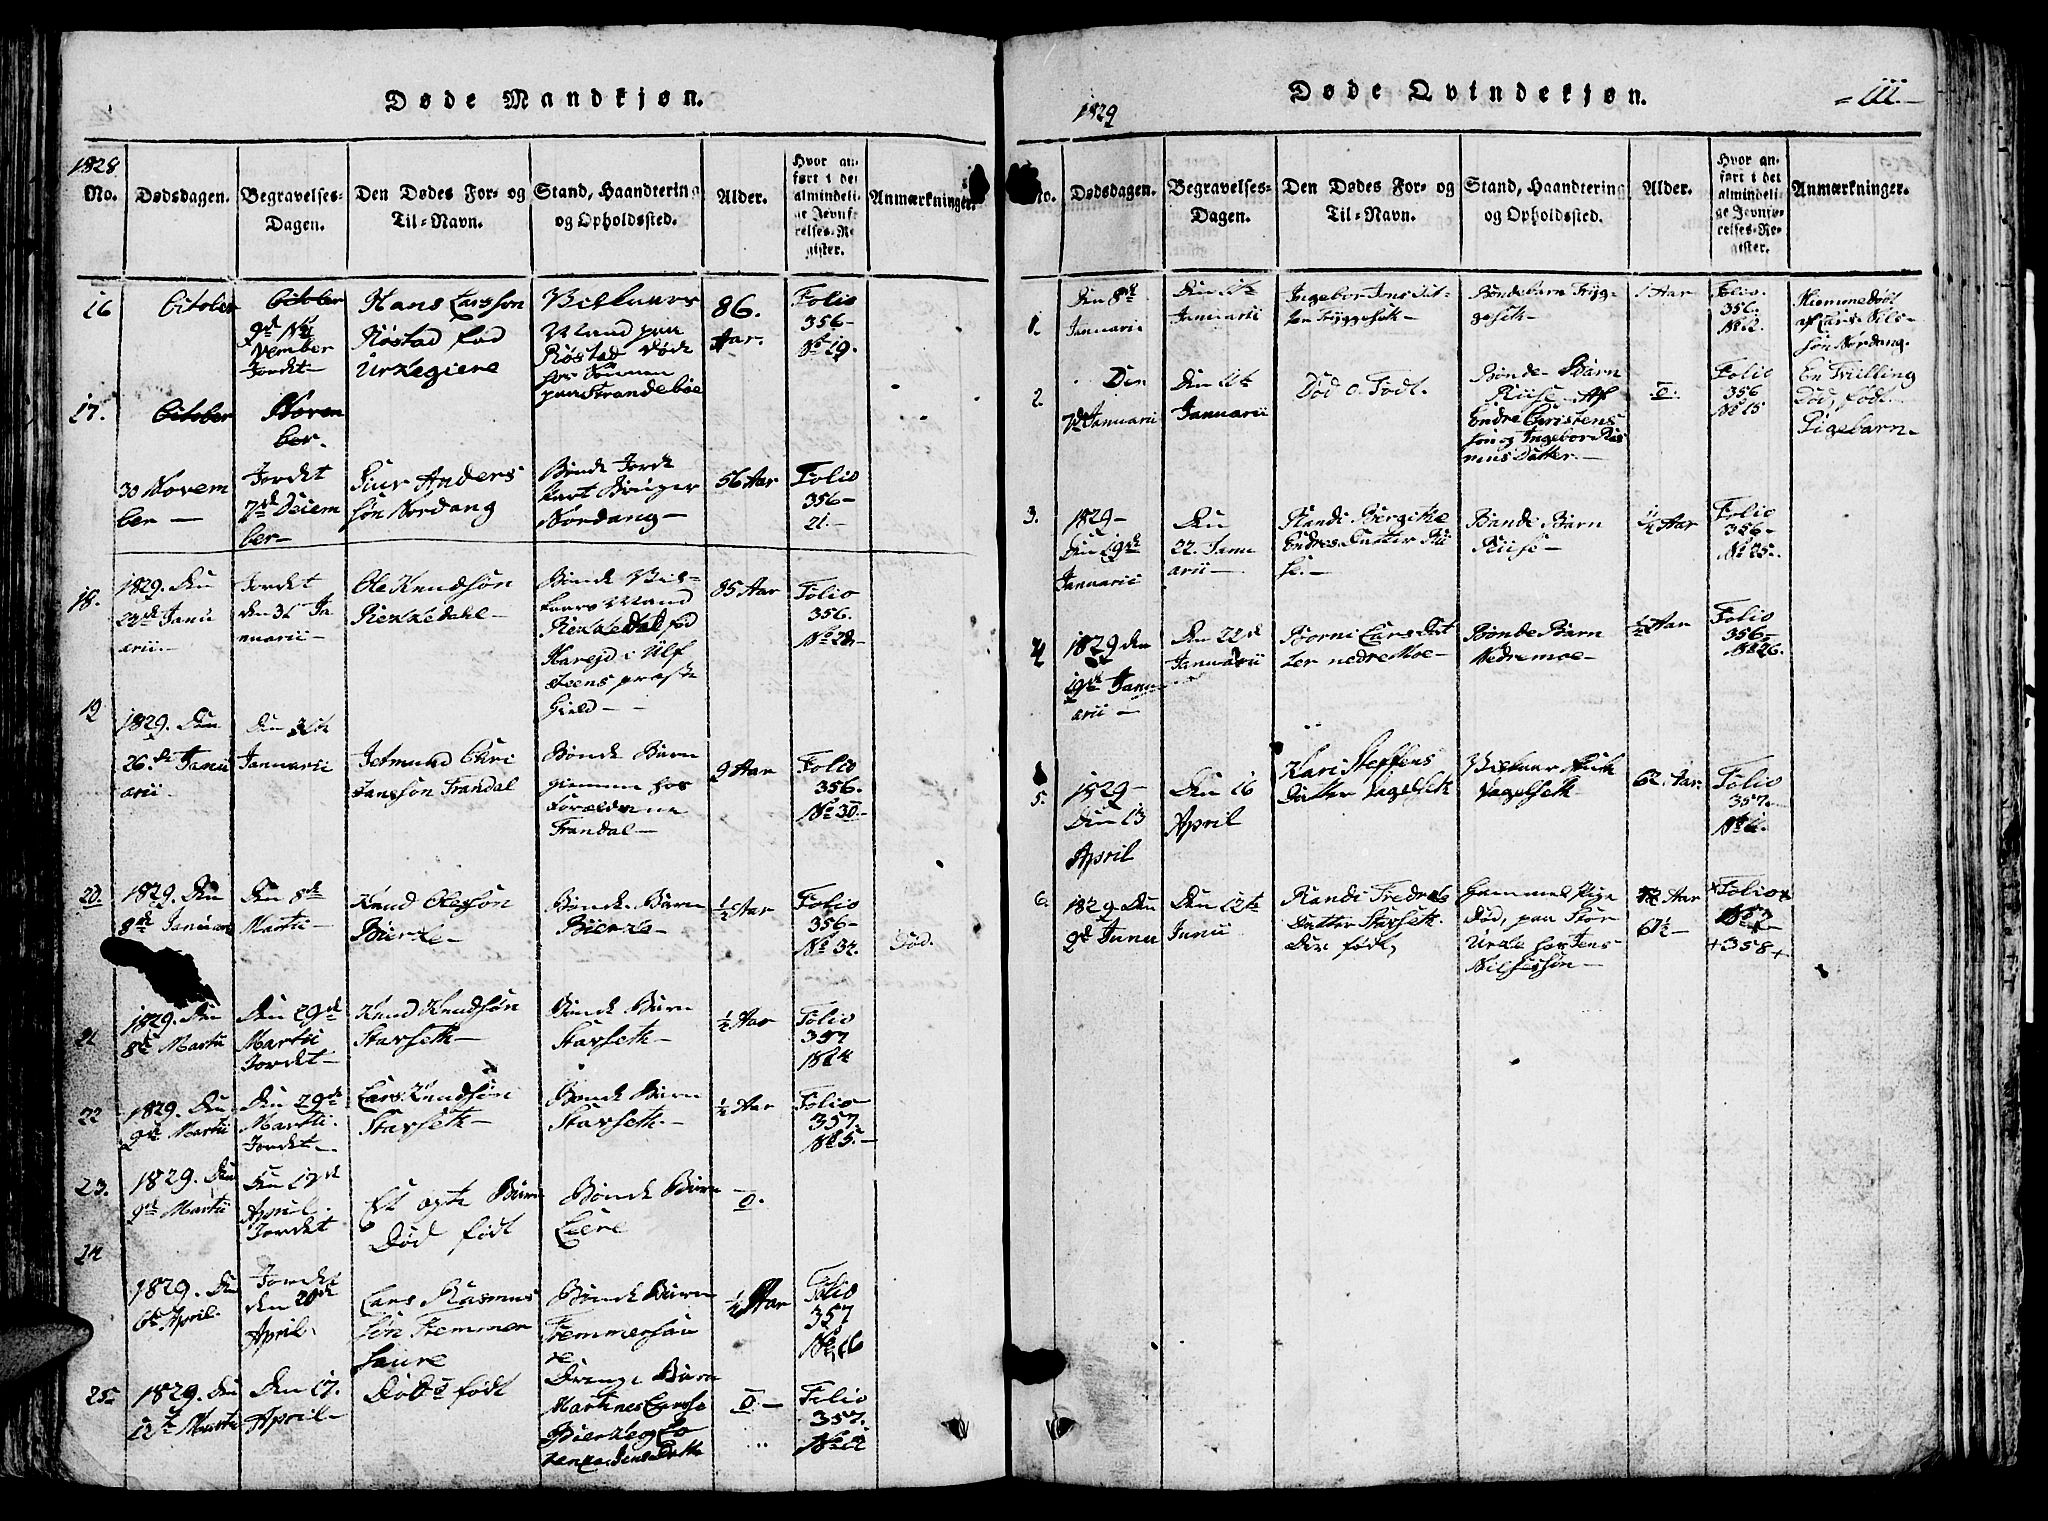 Døde Mandkjøn.
1828
No.
Dødsdagen.
Begravelses-
Dagen.
Den Dødes For- og
Til-Navn.
Stand, Haandtering
og Opholdssted.
Alder.
Hvor an-
ført i det
almindeli-
ge Jevnfø-
relses-Re-
gister.
Anmærkninger.
16
October
October
9de No
vember
Jordet-
Hans Larsson
Røstad fød
Urkegiere
Vilkaars
Mand paa
Røstad døde
hos Sønnen
paa Strandebøe
86.
Aar.
Folio
356-
No 19.
17.
October
Novem
ber.
30 Novem
ber -
Jordet
7de Decem
ber-
Siur Anders
søn Nordang
Bonde Jorde
part Bruger
Nordang-
56 Aar
Folio
356-
21.-
18.
1829. Den
23de Janu
arii.
Jordet
den 31 Ja
nuarii-
Ole Knudsøn
Rekkedahl-
Bonde Vil-
kaars Mand
Rekkedal fød
Hareid i Ulf
steens præste
Gield-
85 Aar
Folio
356.
No 28-
19
1829. Den
26.de Janu
arii.
Den 31te
Januarii
Jetmund Chri
stansøn Trandal
Bonde Barn
hiemme hos
Foreldrene
Trandal-
9 Aar
Folio
356.
No 30.-
20.
1829. Den
8de Januari
Den 8de
Martii-
Knud Olessøn
Bierke-
Bonde Barn
Bierke-
½ Aar
Folio
356-
No 32.
Død.
21
1829. Den
8de Martii
Den 29de
Martii
Jordet-
Knud Knudsøn
Stavseth-
Bonde Barn
Stavseth-
½ Aar
Folio
357
No 4
22
1829. Den
9de Martii
Den 29de
Martii.
Jordet-
Lars Knudsøn
Stavseth-
Bonde Barn
Stavseth.-
½ Aar
Folio-
357.
No 5.-
23.
1829. Den
9de Martii
Den 12te
April.
Jordet
Et ægte Barn
Død født
Bonde Barn
Leere
0.
24
1829. Den
6te April.
Jordet
den 20de
April.
Lars Rasmus
søn Stemmer
saure
Bonde Barn
Stemmersau
re
½ Aar
Folio
357
No 16
25
1829. Den
12te Martii
Den 17.
April-
Død født
Drenge Barn
Martines Larsse
Bierke og Lo
0.-
Folio
357.
Døde Qvindekjøn.
1829
- 111.-
No.
Dødsdagen.
Begravelses-
Dagen.
Den Dødes For- og
Til-Navn.
Stand, Haandtering
og Opholdssted.
Alder.
Hvor an-
ført i det
almindeli-
ge Jevnfø-
relses-Re-
gister.
Anmærkninger.
1.
Den 8de
Januarii
Den 11te
Januarii
Ingebor Jons Dat-
ter Tryggeseth-
Bondebarn Tryg-
geseth-
1 Aar
Folio.
356.
No 12.
Hiemmedøbt
af Lars Nils-
søn Nordang.
2
Den
7de Januarii
Den 11te
Januarii
Død o. Født.
Bonde-Barn
Riise- Af
Endre Christens
søn og Ingebor Ras
mus Datter.-
0.
Folio
356
No 15
En Trilling
Død, født
Pigebarn-
3.
1829-
Den 19de
Januarii
Den
22. Janu
arii-
Randi Bergithe
Endres Datter Rii
se.-
Bonde Barn
Riise-
½ Aar
Folio
356-
No 25.
4
1829 den
19de Janu-
arii-
Den 22de
Januarii
Borni Lars Dat
ter nedre Moe-
Bonde Barn
Nedremoe-
½ Aar
Folio
356-
No 26.
5.
1829-
Den 13
April
Den 16
April
Kari Steffens
Datter Vagseth
Vilkaar
Vagseth
62. Aar.
Folio
357.-
No 11.
6.
1829 Den
9de Junii
Den 12te
Junii
Randi Fredriks
Datter Stavseth
Der født,
Gammel Pige
Død, paa Stor
Urke hos Jens
Nilsessøn-
Aar
61½-
Folio
+358+